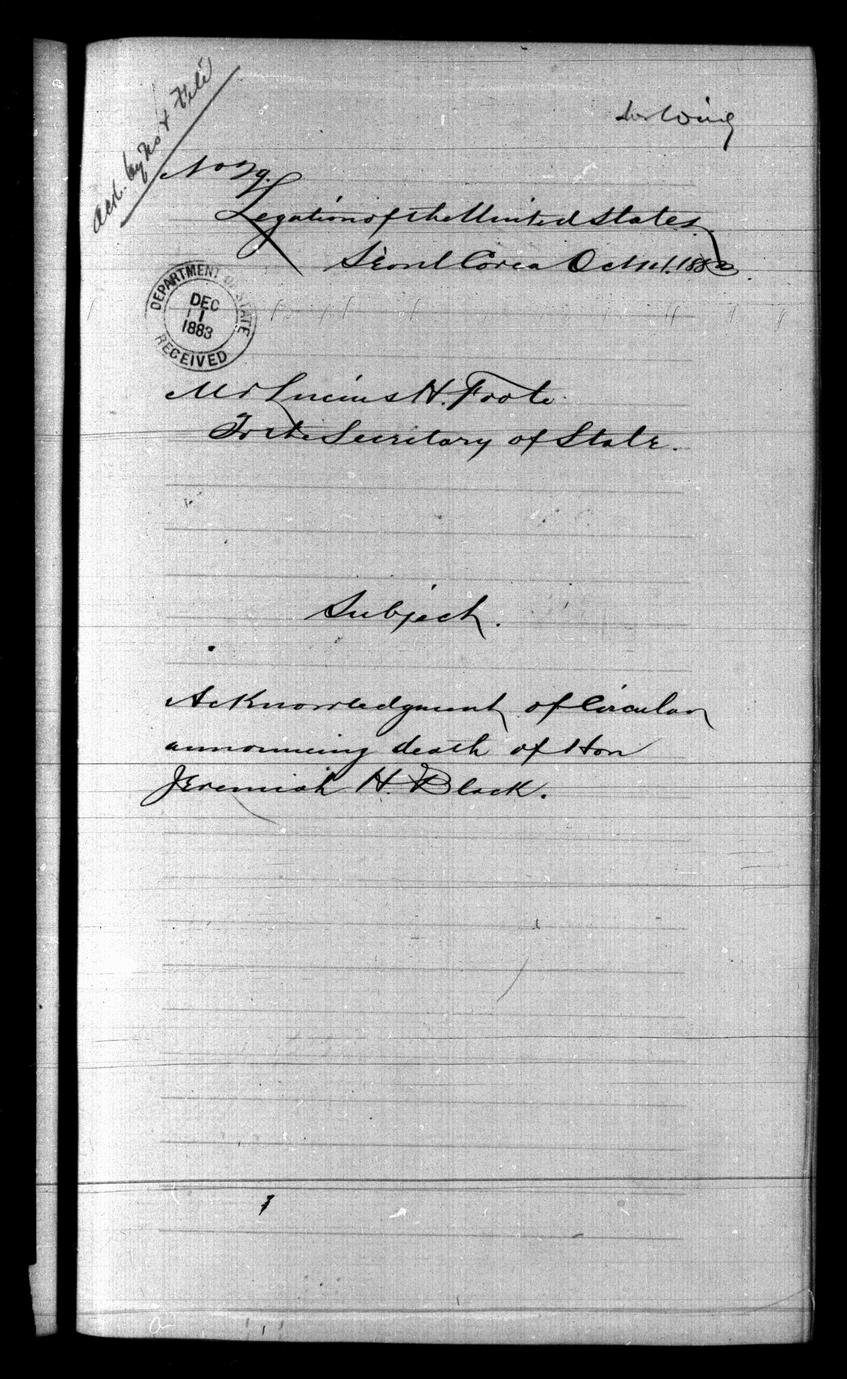 ack. by No & File
No 29.
Legation of the United States
Séoul Corea Oct 1st, 1883
DEPARTMENT OF STATE
DEC
11
1883
RECEIVED
Mr Lucius H. Foote
To the Secretary of State.
Subject.
Acknowledgment of Circular
announcing death of Hon
Jeremiah H. Black.